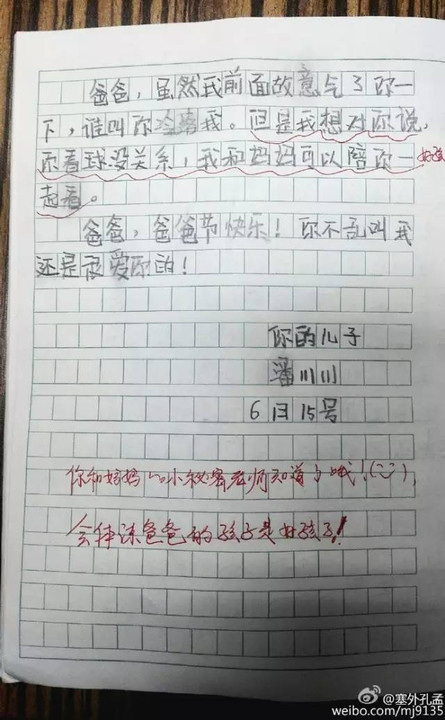 爸爸，虽然我前面故意气了你一
下，谁叫你冷落我。但是我想对你说，
你看球没关系，我和妈妈可以陪你一
起看。
爸爸，爸爸节快乐！你不乱叫我
还是很爱你的！
你的儿子
潘川川
6月15号
你和妈妈的小秘密老师知道了哦！
会体谅爸爸的孩子是好孩子！
@塞外孔孟
weibo.com/mj9135